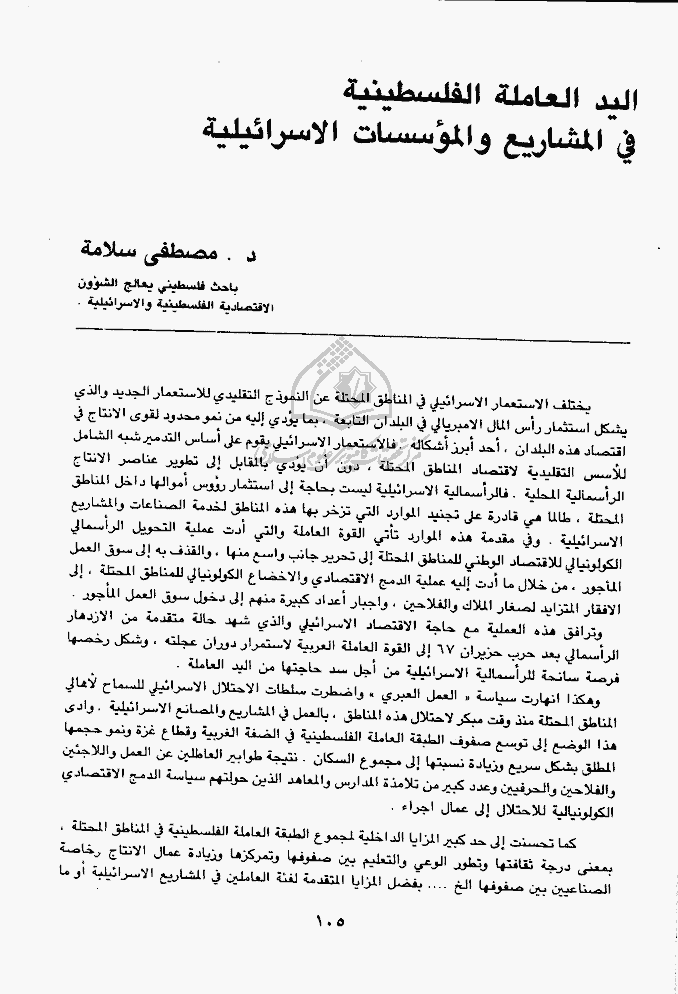 اليد العاملة الفلسطينية
في المشاريع والمؤسسات الاسرائيلية
د . مصطفى سلامة
باحث فلسطيني يعالج الشؤون
الاقتصادية الفلسطينية والاسرائيلية .
يختلف الاستعمار الاسرائيلي في المناطق المحتلة عن النموذج التقليدي للاستعمار الجديد والذي
يشكل استثمار رأس المال الامبريالي في البلدان التابعة ، بما يؤدي إليه من نمو محدود لقوى الانتاج في
اقتصاد هذه البلدان ، أحد أبرز أشكاله . فالاستعمار الاسرائيلي يقوم على أساس التدمير شبه الشامل
للأسس التقليدية لاقتصاد المناطق المحتلة ، دون أن يؤدي بالمقابل إلى تطوير عناصر الانتاج
الرأسمالية المحلية . فالرأسمالية الاسرائيلية ليست بحاجة إلى استثمار رؤوس أموالها داخل المناطق
المحتلة ، طالما هي قادرة على تجنيد الموارد التي تزخر بها هذه المناطق لخدمة الصناعات والمشاريع
الاسرائيلية . وفي مقدمة هذه الموارد تأتي القوة العاملة والتي أدت عملية التحويل الرأسمالي
الكولونيالي للاقتصاد الوطني للمناطق المحتلة إلى تحرير جانب واسع منها ، والقذف به إلى سوق العمل
المأجور ، من خلال ما أدت إليه عملية الدمج الاقتصادي والاخضاع الكولونيالي للمناطق المحتلة ، إلى
الافقار المتزايد لصغار الملاك والفلاحين ، واجبار أعداد كبيرة منهم إلى دخول سوق العمل المأجور .
وترافق هذه العملية مع حاجة الاقتصاد الاسرائيلي والذي شهد حالة متقدمة من الازدهار
الرأسمالي بعد حرب حزيران ٦٧ إلى القوة العاملة العربية لاستمرار دوران عجلته ، وشكل رخصها
فرصة سانحة للرأسمالية الاسرائيلية من أجل سد حاجتها من اليد العاملة .
وهكذا انهارت سياسة « العمل العبري » واضطرت سلطات الاحتلال الاسرائيلي للسماح لأهالي
المناطق المحتلة منذ وقت مبكر لاحتلال هذه المناطق ، بالعمل في المشاريع والمصانع الاسرائيلية . وادى
هذا الوضع إلى توسع صفوف الطبقة العاملة الفلسطينية في الضفة الغربية وقطاع غزة ونمو حجمها
المطلق بشكل سريع وزيادة نسبتها إلى مجموع السكان . نتيجة طوابير العاطلين عن العمل واللاجئين
والفلاحين والحرفيين وعدد كبير من تلامذة المدارس والمعاهد الذين حولتهم سياسة الدمج الاقتصادي
الكولونيالية للاحتلال إلى عمال اجراء .
كما تحسنت إلى حد كبير المزايا الداخلية لمجموع الطبقة العاملة الفلسطينية في المناطق المحتلة ،
بمعنى درجة ثقافتها وتطور الوعي والتعليم بين صفوفها وتمركزها وزيادة عمال الانتاج رخاصة
الصناعيين بين صفوفها الخ .... بفضل المزايا المتقدمة لفئة العاملين في المشاريع الاسرائيلية أو ما
١٠٥